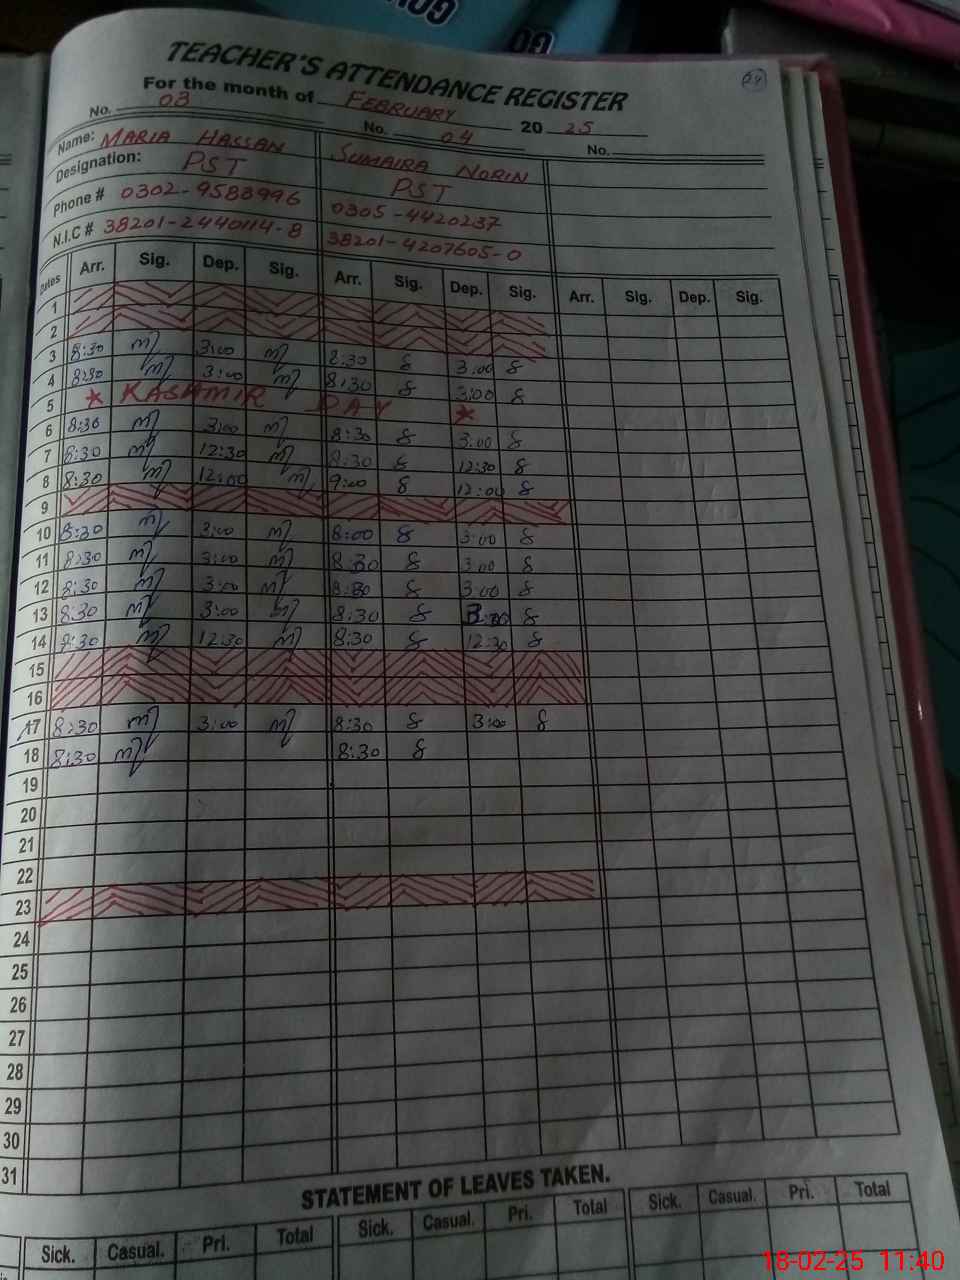 24
TEACHER'S ATTENDANCE REGISTER
For the month of FEBRUARY 2025
No. 03 No. 04 No.
Name: MARIA HASSAN SUMAIRA NORIN
Designation: PST PST
Phone # 0302-9583996 0305-4420237
N.I.C # 38201-2440114-8 38201-4207605-0
Dates Arr. Sig. Dep. Sig. Arr. Sig. Dep. Sig. Arr. Sig. Dep. Sig.
1
2
3 8:30 3:00 8:30 3:00
4 8:30 3:00 8:30 3:00
5 * KASHMIR DAY *
6 8:30 3:00 8:30 3:00
7 8:30 12:30 8:30 12:30
8 8:30 12:00 9:00 12:00
9
10 8:30 3:00 8:00 3:00
11 8:30 3:00 8:30 3:00
12 8:30 3:00 8:30 3:00
13 8:30 3:00 8:30 3:00
14 8:30 12:30 8:30 12:30
15
16
17 8:30 3:00 8:30 3:00
18 8:30 8:30
19
20
21
22
23
24
25
26
27
28
29
30
31
STATEMENT OF LEAVES TAKEN.
Sick. Casual. Pri. Total Sick. Casual. Pri. Total Sick. Casual. Pri. Total
18-02-25 11:40